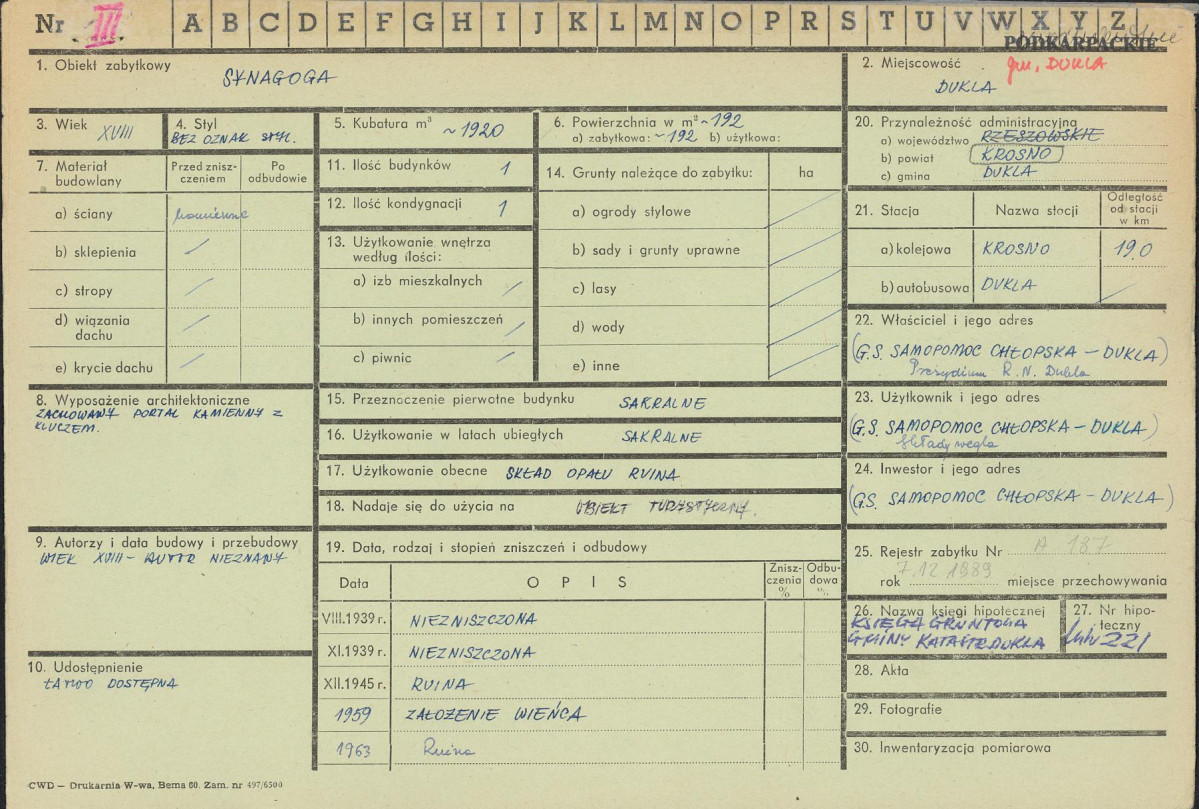 Nr III A B C D E F G H I J K L M N O P R S T U V W X Y Z
PODKARPACKIE
1. Obiekt zabytkowy
SYNAGOGA
2. Miejscowość
gm. DUKLA
DUKLA
3. Wiek XVIII
4. Styl
BEZ OZNAK STYL.
5. Kubatura m³ ~1920
6. Powierzchnia w m² ~192
a) zabytkowa: ~192 b) użytkowa:
20. Przynależność administracyjna
a) województwo RZESZOWSKIE
b) powiat KROSNO
c) gmina DUKLA
7. Materiał budowlany
Przed zniszczeniem
Po odbudowie
a) ściany kamienne
b) sklepienia
c) stropy
d) wiązania dachu
e) krycie dachu
11. Ilość budynków 1
12. Ilość kondygnacji 1
13. Użytkowanie wnętrza
według ilości:
a) izb mieszkalnych
b) innych pomieszczeń
c) piwnic
14. Grunty należące do zabytku: ha
a) ogrody stylowe
b) sady i grunty uprawne
c) lasy
d) wody
e) inne
21. Stacja
Nazwa stacji
Odległość
od stacji
w km
a) kolejowa KROSNO 19.0
b) autobusowa DUKLA
22. Właściciel i jego adres
(G.S. SAMOPOMOC CHŁOPSKA – DUKLA)
Prezydium R.N. Dukla
8. Wyposażenie architektoniczne
ZACHOWANY PORTAL KAMIENNY Z
KLUCZEM.
15. Przeznaczenie pierwotne budynku SAKRALNE
16. Użytkowanie w latach ubiegłych SAKRALNE
17. Użytkowanie obecne SKŁAD OPAŁU RUINA
18. Nadaje się do użycia na OBIEKT TURYSTYCZNY.
23. Użytkownik i jego adres
(G.S. SAMOPOMOC CHŁOPSKA – DUKLA)
Składy węgla
24. Inwestor i jego adres
(G.S. SAMOPOMOC CHŁOPSKA – DUKLA)
9. Autorzy i data budowy i przebudowy
WIEK XVIII – AUTOR NIEZNANY
19. Data, rodzaj i stopień zniszczeń i odbudowy
Data
O P I S
Zniszczenia %
Odbudowa %
VIII.1939 r. NIEZNISZCZONA
XI.1939 r. NIEZNISZCZONA
XII.1945 r. RUINA
1959 ZAŁOŻENIE WIEŃCA
1963 Ruina
25. Rejestr zabytku Nr A 187
rok 7.12 1989 miejsce przechowywania
26. Nazwa księgi hipotecznej
KSIĘGA GRUNTOWA
GMINY KATASTR. DUKLA
27. Nr hipoteczny
Lwh 221
10. Udostępnienie
ŁATWO DOSTĘPNA
28. Akta
29. Fotografie
30. Inwentaryzacja pomiarowa
CWD — Drukarnia W-wa, Bema 60. Zam. nr 497/6500